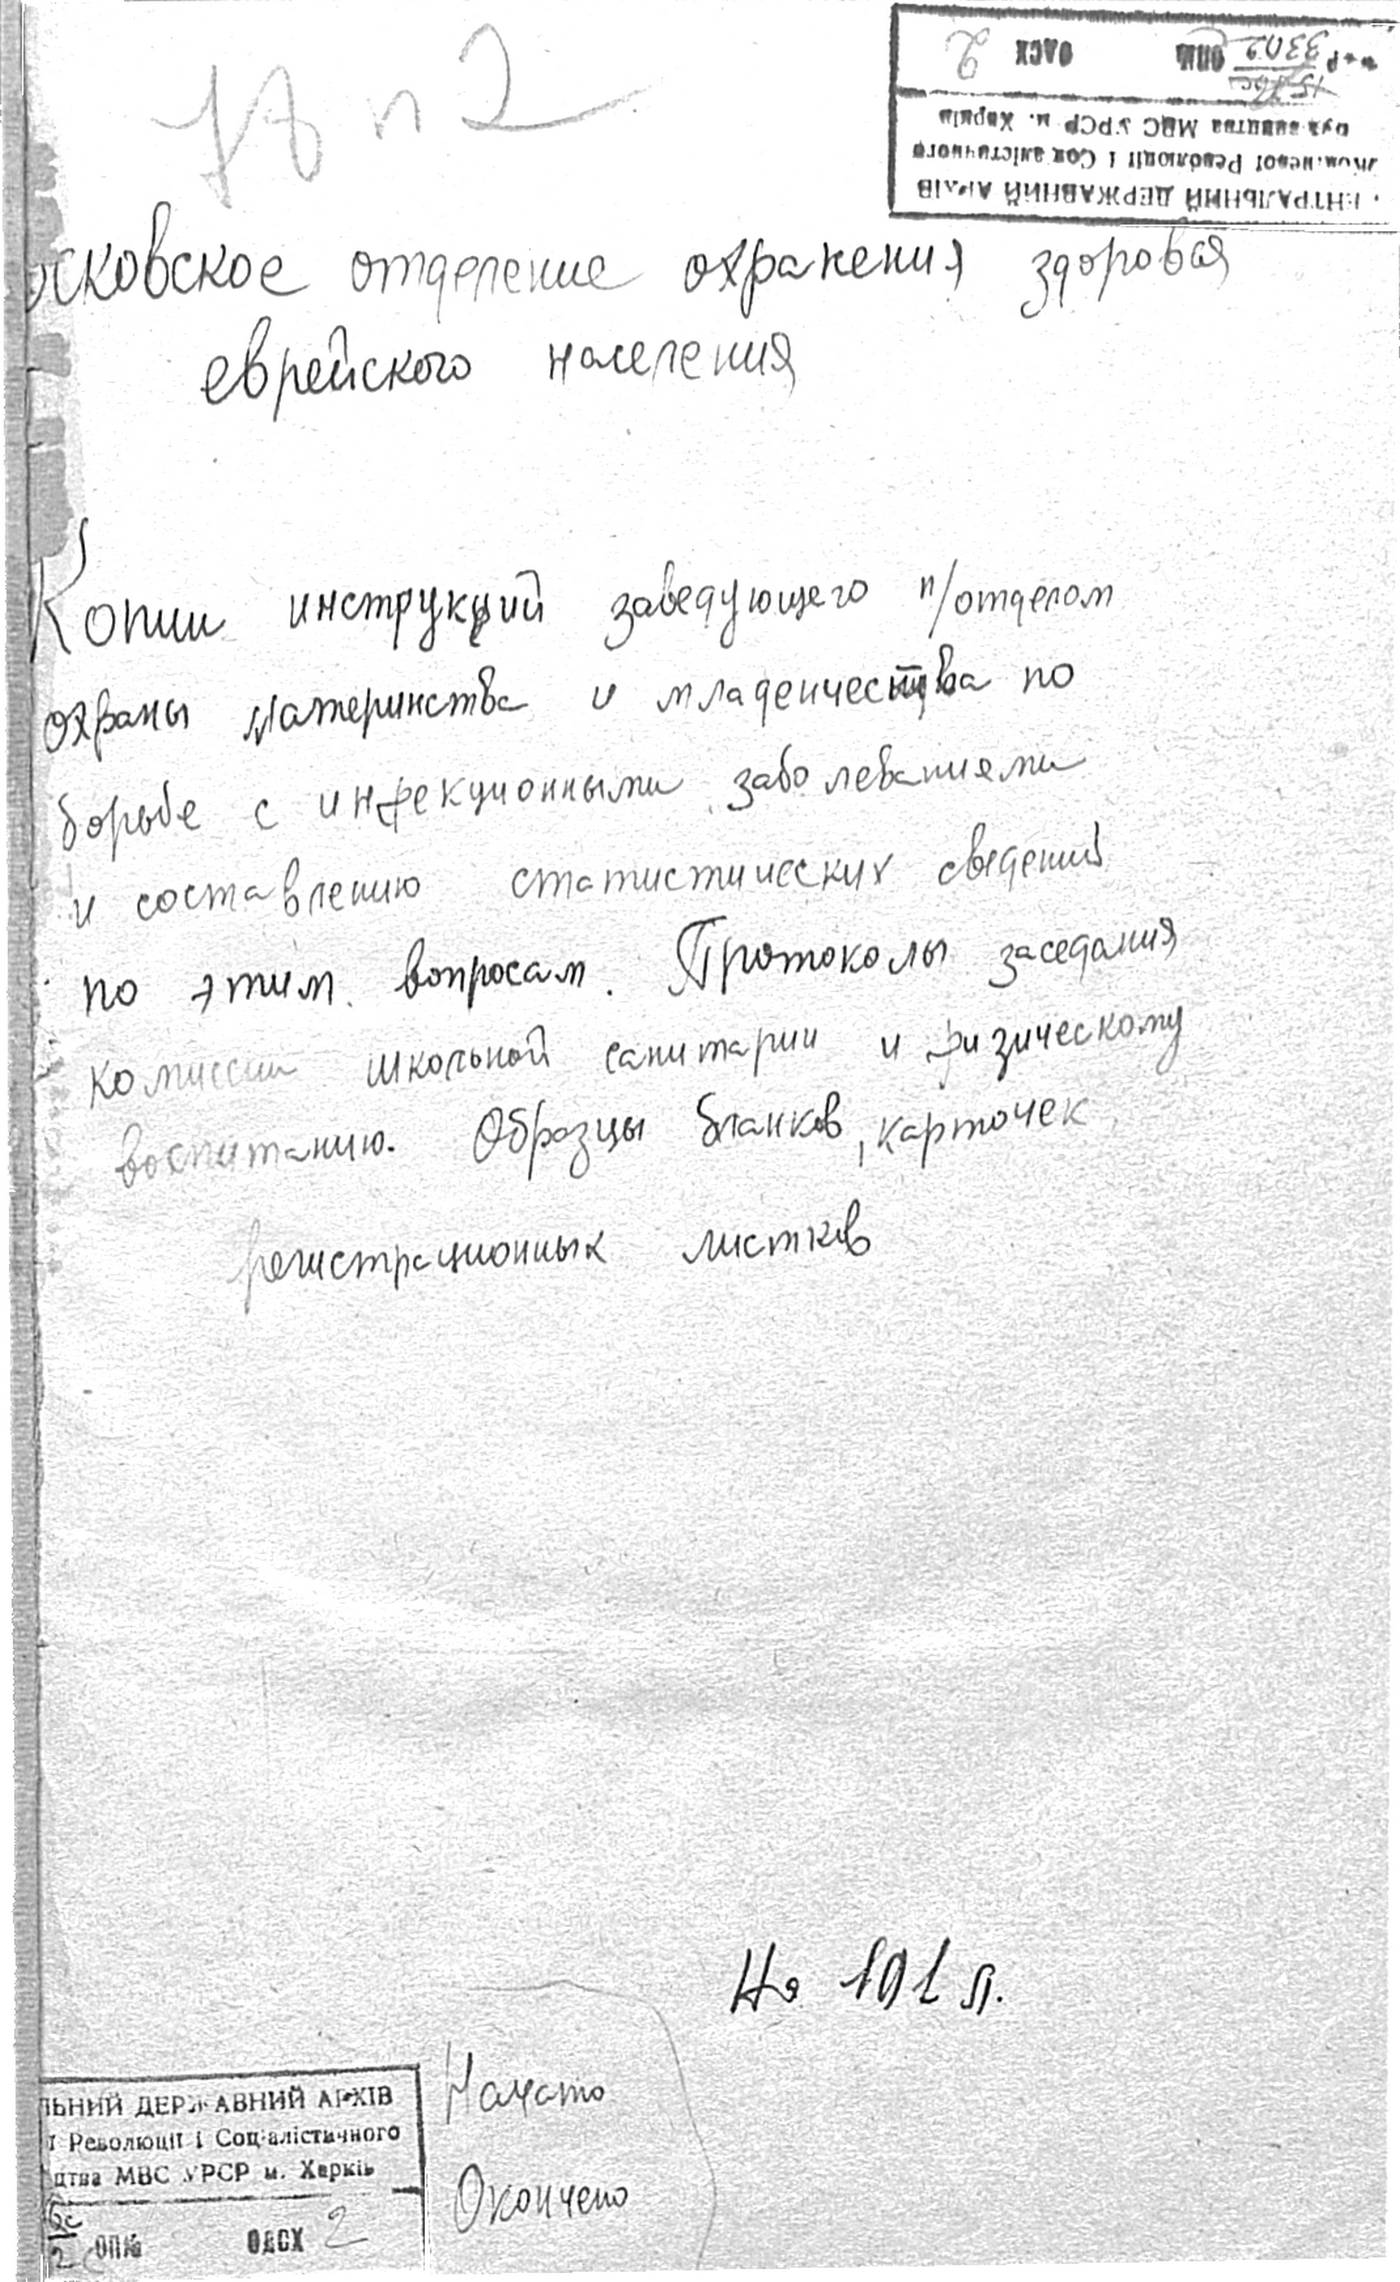 оп 2
ЕНТРАЛЬНИЙ ДЕРЖАВНИЙ АРХІВ
Жовтневої Революції і Соціалістичного
Будівництва МВС УРСР м. Харків
3302 ОПИ ОДСХ 2
осковское отделение охранения здоровья
еврейского населения
Копии инструкций заведующего п/отделом
охраны материнства и младенчества по
борьбе с инфекционными заболеваниями
и составлению статистических сведений
по этим вопросам. Протоколы заседания
комиссии школьной санитарии и физическому
воспитанию. Образцы бланков, карточек
регистрационных листков
На 101 л.
Начато
Окончено
ЛЬНИЙ ДЕРЖАВНИЙ АРХІВ
ї Революції і Соціалістичного
цтва МВС УРСР м. Харків
2 ОПИ ОДСХ 2